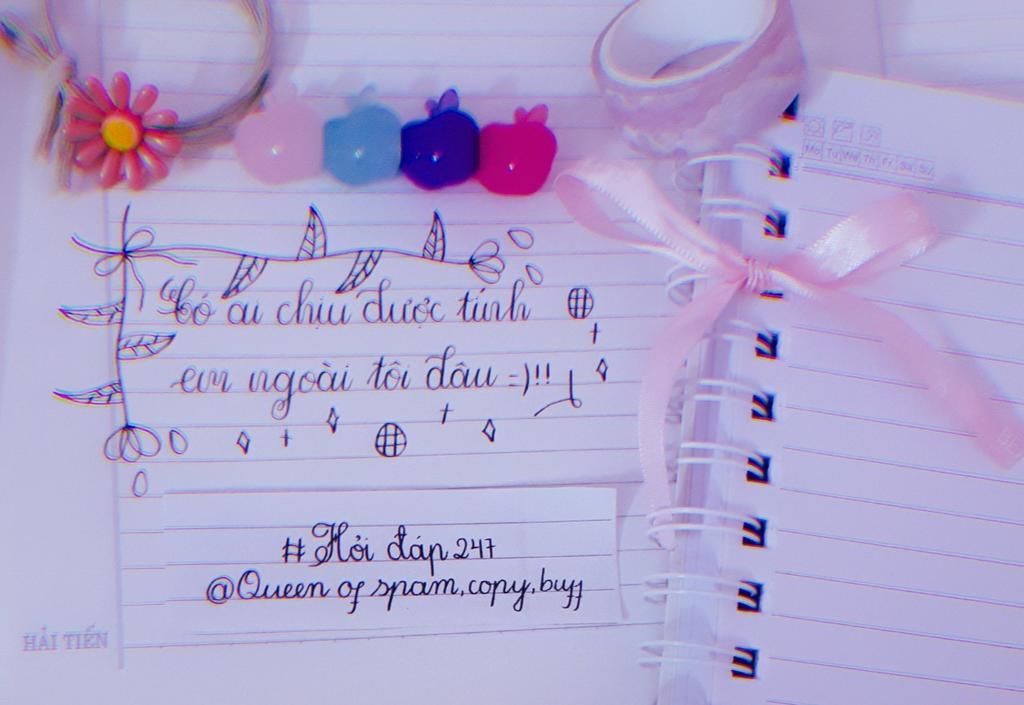 Mo Tu We Th Fr Sa Su
Có ai chịu được tính
em ngoài tôi đâu =)!!
# Hỏi đáp 247
@Queen of spam, copy, buff
HẢI TIẾN